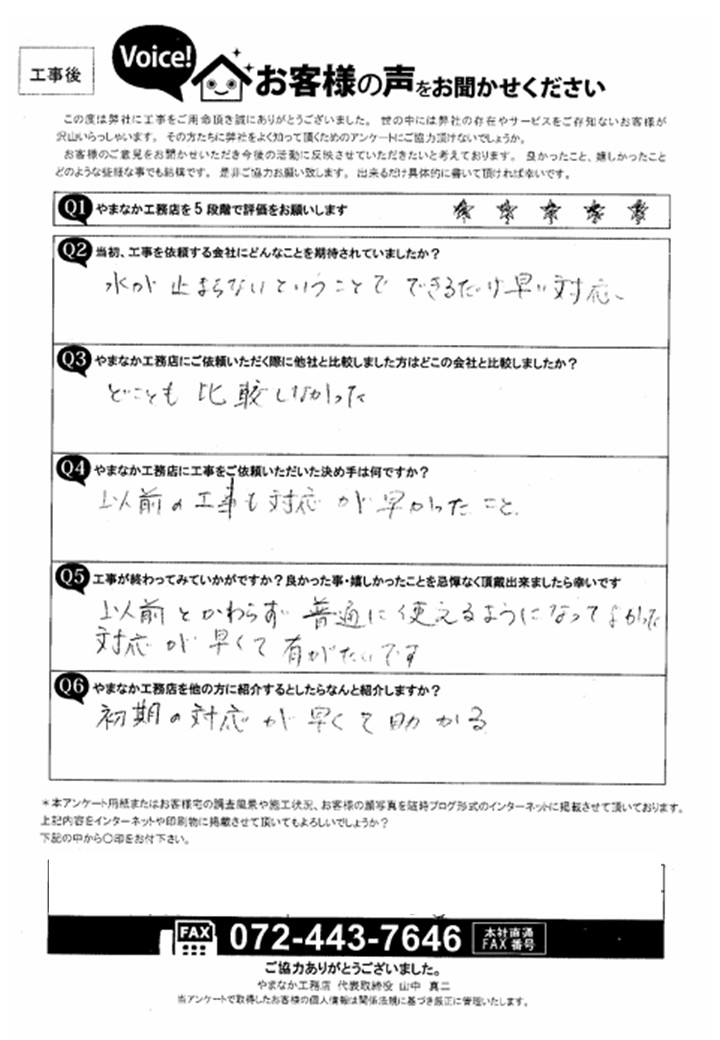 工事後
Voice!
お客様の声をお聞かせください
この度は弊社に工事をご用命頂き誠にありがとうございました。 世の中には弊社の存在やサービスをご存知ないお客様が
沢山いらっしゃいます。 その方たちに弊社をよく知って頂くためのアンケートにご協力頂けないでしょうか。
お客様のご意見をお聞かせいただき今後の活動に反映させていただきたいと考えております。 良かったこと、嬉しかったこと
どのような些細な事でも結構です。 是非ご協力お願い致します。 出来るだけ具体的に書いて頂ければ幸いです。
Q1 やまなか工務店を5段階で評価をお願いします
Q2 当初、工事を依頼する会社にどんなことを期待されていましたか?
水が止まらないということで できるだけ早い対応、
Q3 やまなか工務店にご依頼いただく際に他社と比較しました方はどこの会社と比較しましたか?
どことも比較しなかった
Q4 やまなか工務店に工事をご依頼いただいた決め手は何ですか?
以前の工事も対応が早かったこと.
Q5 工事が終わってみていかがですか?良かった事・嬉しかったことを忌憚なく頂戴出来ましたら幸いです
以前とかわらず 普通に使えるようになってよかった
対応が早くて有がたいです
Q6 やまなか工務店を他の方に紹介するとしたらなんと紹介しますか?
初期の対応が早くて助かる
*本アンケート用紙またはお客様宅の調査風景や施工状況、お客様の顔写真を随時ブログ形式のインターネットに掲載させて頂いております。
上記内容をインターネットや印刷物に掲載させて頂いてもよろしいでしょうか?
下記の中から〇印をお付下さい。
FAX 072-443-7646 本社直通
FAX番号
ご協力ありがとうございました。
やまなか工務店 代表取締役 山中 真二
当アンケートで取得したお客様の個人情報は関係法規に基づき厳正に管理いたします。